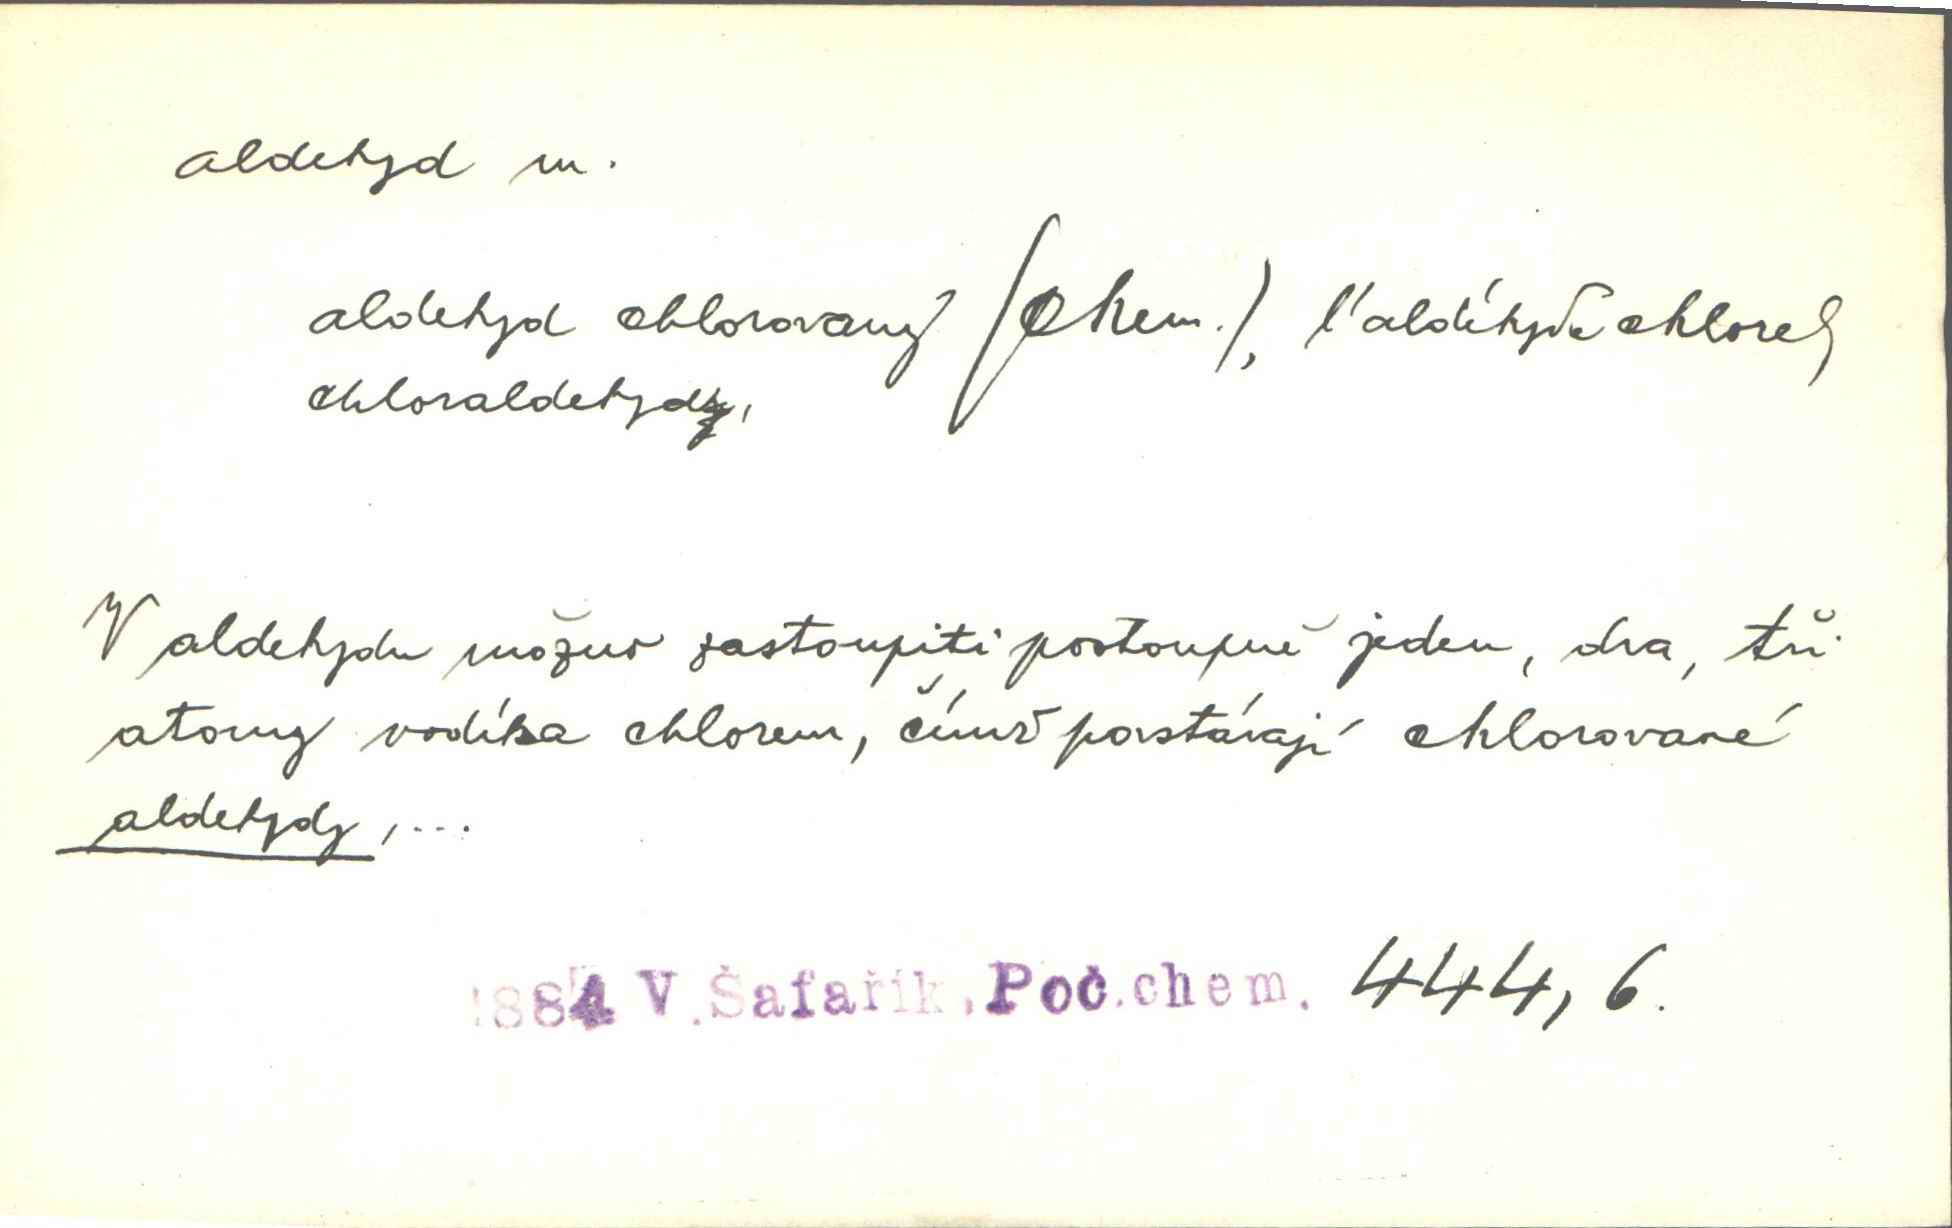 aldehyd m.
aldehyd chlorovaný (chem.), l'aldéhyde chloré,
chloraldehyd,
V aldehydu možno zastoupiti postoupně jeden, dva, tři
atomy vodíka chlorem, čímž povstávají chlorované
aldehydy,...
1884 V. Šafařík, Poč.chem. 444, 6.